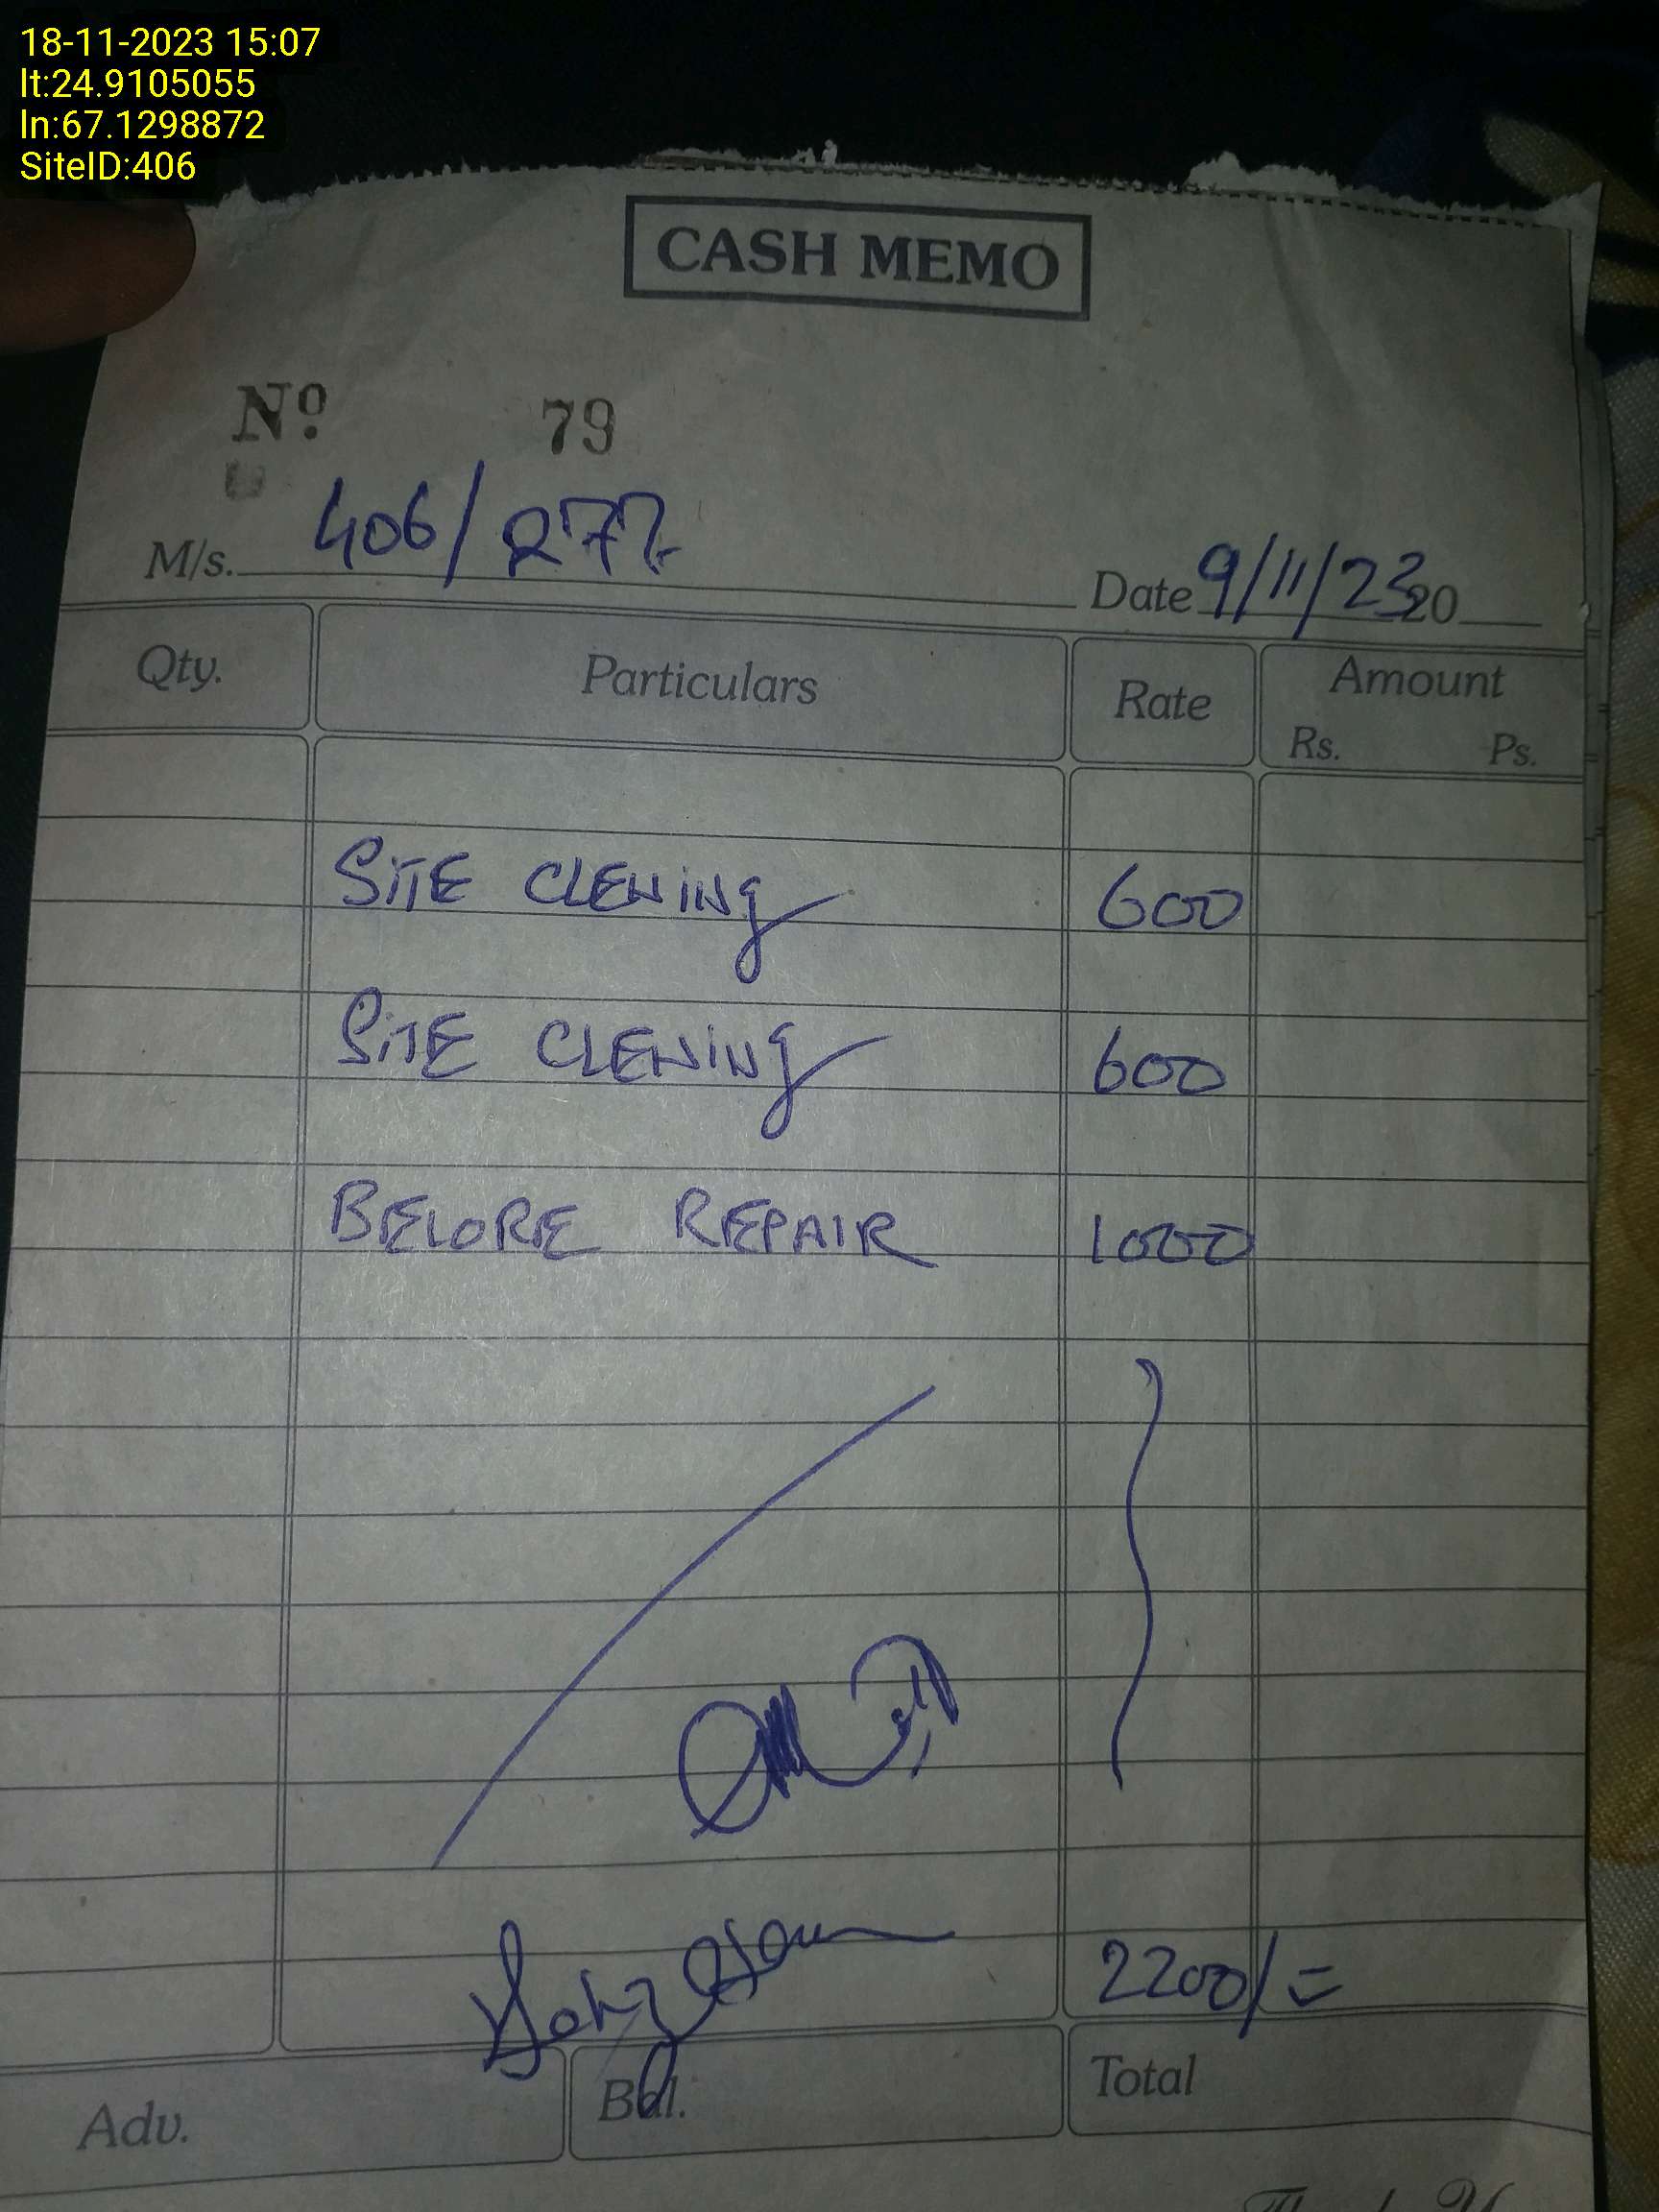 18-11-2023 15:07
lt:24.9105055
ln:67.1298872
SiteID:406
CASH MEMO
Nº 79
M/s. 406/277
Date 9/11/23 20
Qty. Particulars Rate Amount
Rs. Ps.
SITE CLENING 600
SITE CLENING 600
BELORE REPAIR 1000
2200/=
Adv. Bal. Total